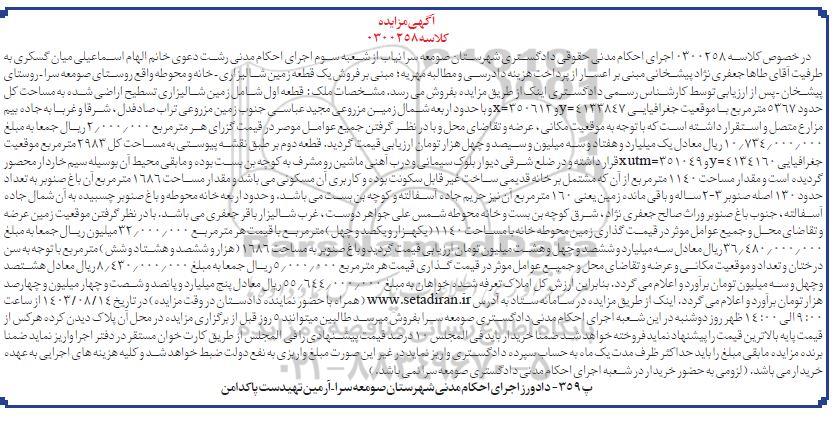 آگهی مزایده
کلاسه ۰۳۰۰۲۵۸
در خصوص کلاسه ۰۳۰۰۲۵۸ اجرای احکام مدنی حقوقی دادگستری شهرستان صومعه سرا نیاب از شعبه سوم اجرای احکام مدنی رشت دعوی خانم الهام اسماعیلی میان گسکری به
طرفیت آقای طاها جعفری نژاد پیشخانی مبنی بر اعسار از پرداخت هزینه دادرسی و مطالبه مهریه؛ مبنی بر فروش یک قطعه زمین شالیزاری - خانه و محوطه واقع روستای صومعه سرا - روستای
پیشخان - پس از ارزیابی توسط کارشناس رسمی دادگستری اینک از طریق مزایده بفروش می رسد. مشخصات ملک: قطعه اول شامل زمین شالیزاری تسطیح اراضی شده به مساحت کل
حدود ۵۳۶۷ متر مربع با موقعیت جغرافیایی y=۴۱۳۳۸۴۷ و x=۳۵۰۶۱۲ و با حدود اربعه شمال زمین مزروعی مجید عباسی جنوب زمین مزروعی تراب صادقدل، شرقا و غربا به جاده بیم
مزارع متصل و استقرار داشته است که با توجه به موقعیت مکانی، عرضه و تقاضای محل و با در نظر گرفتن جمیع عوامل موصر در قیمت گزرای هر متر مربع ۲/۰۰۰/۰۰۰ ریال جمعا به مبلغ
۱۰/۷۳۴/۰۰۰/۰۰۰ ریال معادل یک میلیارد و هفتاد و سه میلیون و سیصد و چهل هزار تومان ارزیابی قیمت گردید. قطعه دوم بر طبق نقشه پیوستی به مساحت کل ۲۹۸۳ متر مربع موقعیت
جغرافیایی y=۴۱۳۴۱۶۰ و x utm=۳۵۱۰۴۹ قرار داشته و در ضلع شرقی دیوار بلوک سیمانی و درب آهنی ماشین رو مشرف به کوچه بن بست بوده و مابقی محیط آن بوسیله سیم خاردار محصور
گردیده است و مقدار مساحت ۱۱۴۰ متر مربع از آن که مشتمل بر خانه قدیمی ساخت غیر قابل سکونت بوده و کاربری آن مسکونی می باشد و مقدار مساحت ۱۶۸۶ متر مربع آن باغ صنوبر به تعداد
حدود ۱۳۰ اصله صنوبر ۳-۲ ساله و باقی مانده زمین یعنی ۱۶۰ متر مربع آن نیز حریم جاده آسفالته و کوچه بن بست می باشد. و حدود اربعه خانه محوطه و باغ صنوبر چسبیده به آن شمال جاده
آسفالته، جنوب باغ صنوبر وراث صالح جعفری نژاد، شرق کوچه بن بست و خانه محوطه شمس علی جواهر دوست، غرب شالیزار باقر جعفری می باشد. با در نظر گرفتن موقعیت زمین عرضه
و تقاضای محل و جمیع عوامل موثر در قیمت گذاری زمین محوطه خانه با مساحت ۱۱۱۴۰ (یکهزار و یکصد و چهل) متر مربع با قیمت هر متر مربع ۳۲/۰۰۰/۰۰۰ میلیون ریال جمعا به مبلغ
۳۶/۴۸۰/۰۰۰/۰۰۰ ریال معادل سه میلیارد و ششصد و چهل و هشت میلیون تومان ارزیابی قیمت گردید و باغ صنوبر به مساحت ۱۶۸۶ (هزار و ششصد و هشتاد و شش) متر مربع با توجه به سن
درختان و تعداد و موقعیت مکانی و عرضه و تقاضای محل و جمیع عوامل موثر در قیمت گذاری قیمت هر متر مربع ۵/۰۰۰/۰۰۰ ریال جمعا به مبلغ ۸/۴۳۰/۰۰۰/۰۰۰ ریال معادل هشتصد
و چهل و سه میلیون تومان برآورد و اعلام می گردد. بنابراین ارزش کل املاک تعرفه شده خواهان به مبلغ ۵۵/۶۴۴/۰۰۰/۰۰۰ ریال معادل پنج میلیارد و پانصد و شصت و چهار میلیون و چهارصد
هزار تومان برآورد و اعلام می گردد. اینک از طریق مزایده در سامانه ستاد به آدرس www.setadiran.ir (همراه با حضور نماینده دادستان در وقت مزایده) در تاریخ ۱۴۰۳/۰۸/۱۴ از ساعت
۹:۰۰ الی ۱۴:۰۰ ظهر روز دوشنبه در این شعبه اجرای احکام مدنی دادگستری صومعه سرا بفروش میرسد طالبین میتوانند ۵ روز قبل از برگزاری مزایده در محل آن پلاک دیدن کرده هرکس از
قیمت پایه بالاترین قیمت را پیشنهاد نماید فروخته خواهد شد ضمنا خریدار باید فی المجلس ۱۰ درصد قیمت پیشنهادی را فی المجلس از طریق کارت خوان مستقر در دفتر اجرا واریز نماید ضمنا
برنده مزایده مابقی مبلغ را باید حداکثر ظرف مدت یک ماه به حساب سپرده دادگستری واریز نماید در غیر این صورت مبلغ واریزی به نفع دولت ضبط خواهد شد و کلیه هزینه های اجرایی به عهده
خریدار می باشد. (لزومی به حضور خریدار در شعبه اجرای احکام مدنی دادگستری صومعه سرا نمی باشد.)
پ ۳۵۹- دادورز اجرای احکام مدنی شهرستان صومعه سرا - آرمین تهیدست پاکدامن